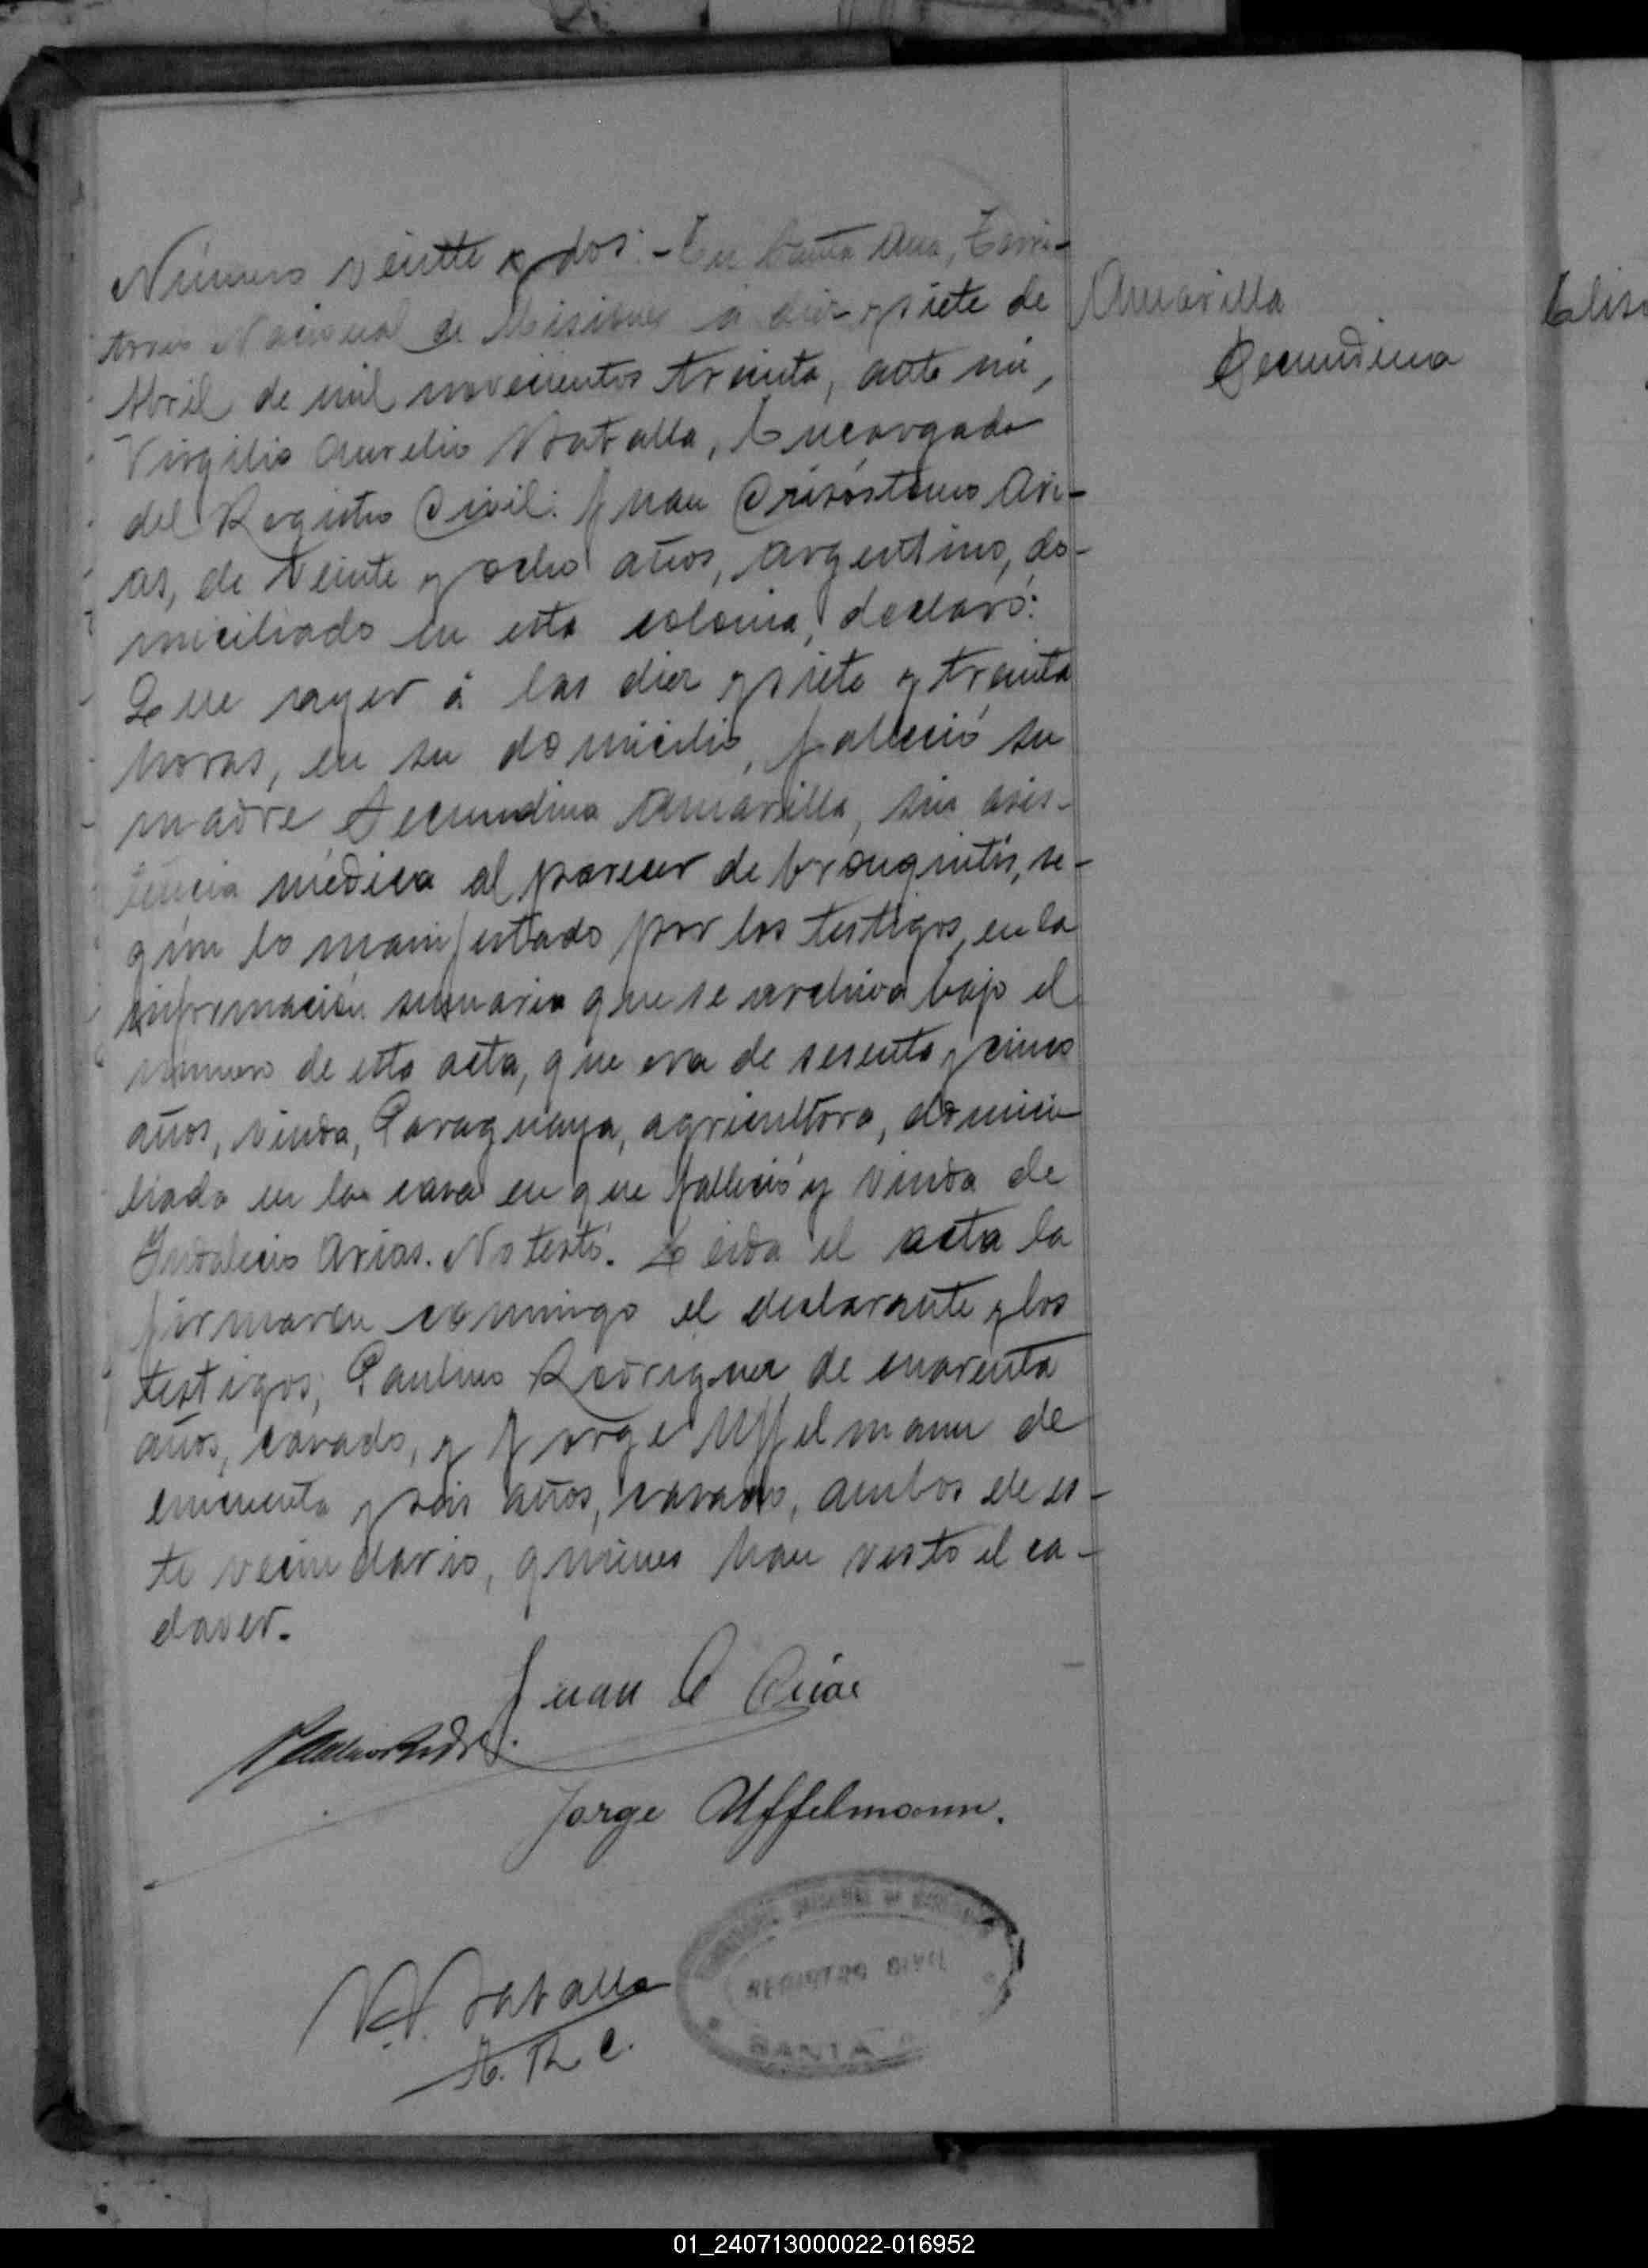 Número veinte y dos:- En Santa Ana, Terri-
torio Nacional de Misiones á diez y siete de
Abril de mil novecientos treinta, ante mi,
Virgilio Aurelio Natalla, Encargado
del Registro Civil: Juan Crisóstomo Ari-
as, de veinte y ocho años, argentino, do-
miciliado en esta colonia, declaró:
Que ayer á las diez y siete y treinta
horas, en su domicilio, falleció su
madre Secundina Amarilla, sin asis-
tencia médica al parecer de bronquitis, se-
gún lo manifestado por los testigos, en la
información sumaria que se archiva bajo el
número de esta acta, que era de sesenta y cinco
años, viuda, Paraguaya, agricultora, domici-
liada en la casa en que falleció y viuda de
Indalecio Arias. No testó. Leida el acta la
firmaron conmigo el declarante y los
testigos; Paulino Rodriguez de cuarenta
años, casado, y Jorge Uffelmann de
cincuenta y seis años, casado, ambos de es-
te vecindario, quienes han visto el ca-
daver.
Amarilla
Secundina
Juan C Arias
Jorge Uffelmann.
REGISTRO CIVIL
SANTA
E. R. C.
01_240713000022-016952